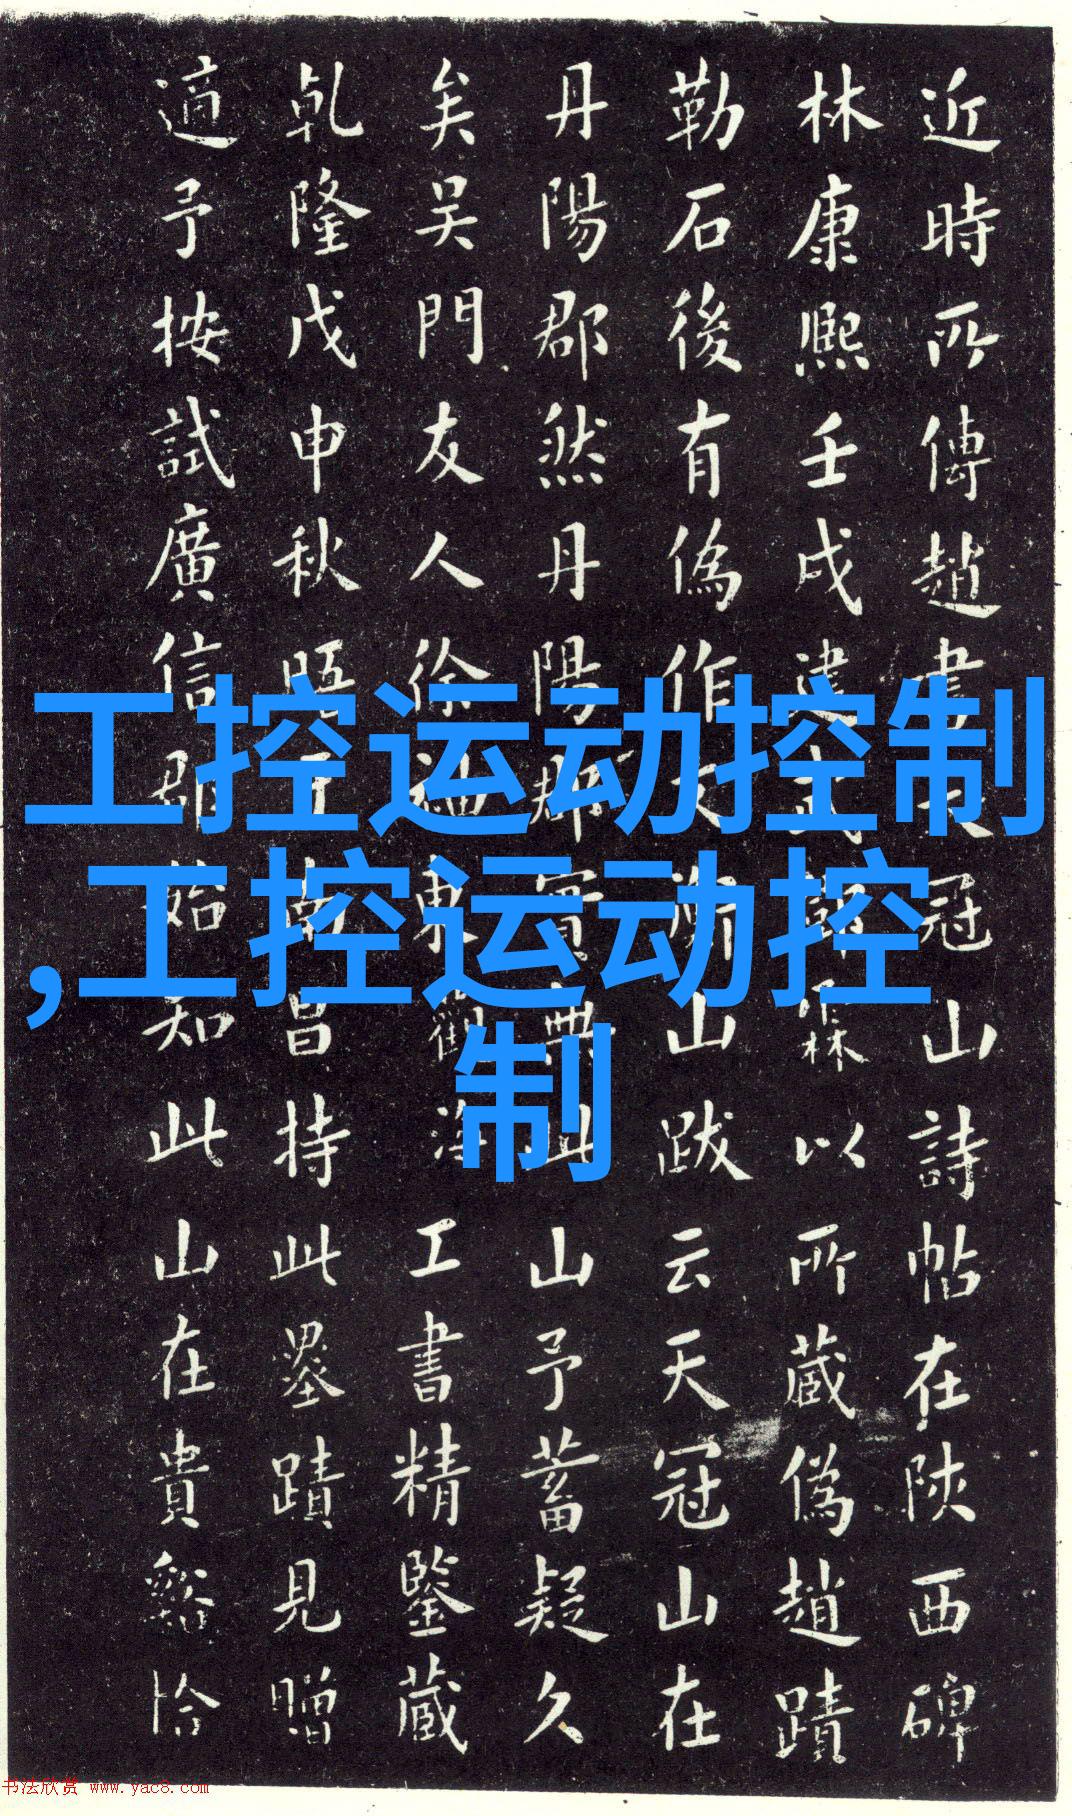 近時所傳趙書天冠山詩帖在陝西碑
林康熙壬戌建武霖以所蔵偽趙蹟
勒石後有偽作文衡山跋云天冠山在
丹陽郡然丹陽郡實無此山予蓄疑久
矣吳門友人徐東觀海工書精鑒蔵
乾隆戊申秋晤于南昌持此墨蹟見贈
適予按試廣信郡始知此山在貴谿恰
工控运动控制
,工控运动控
制
书法欣赏 www.yac8.com